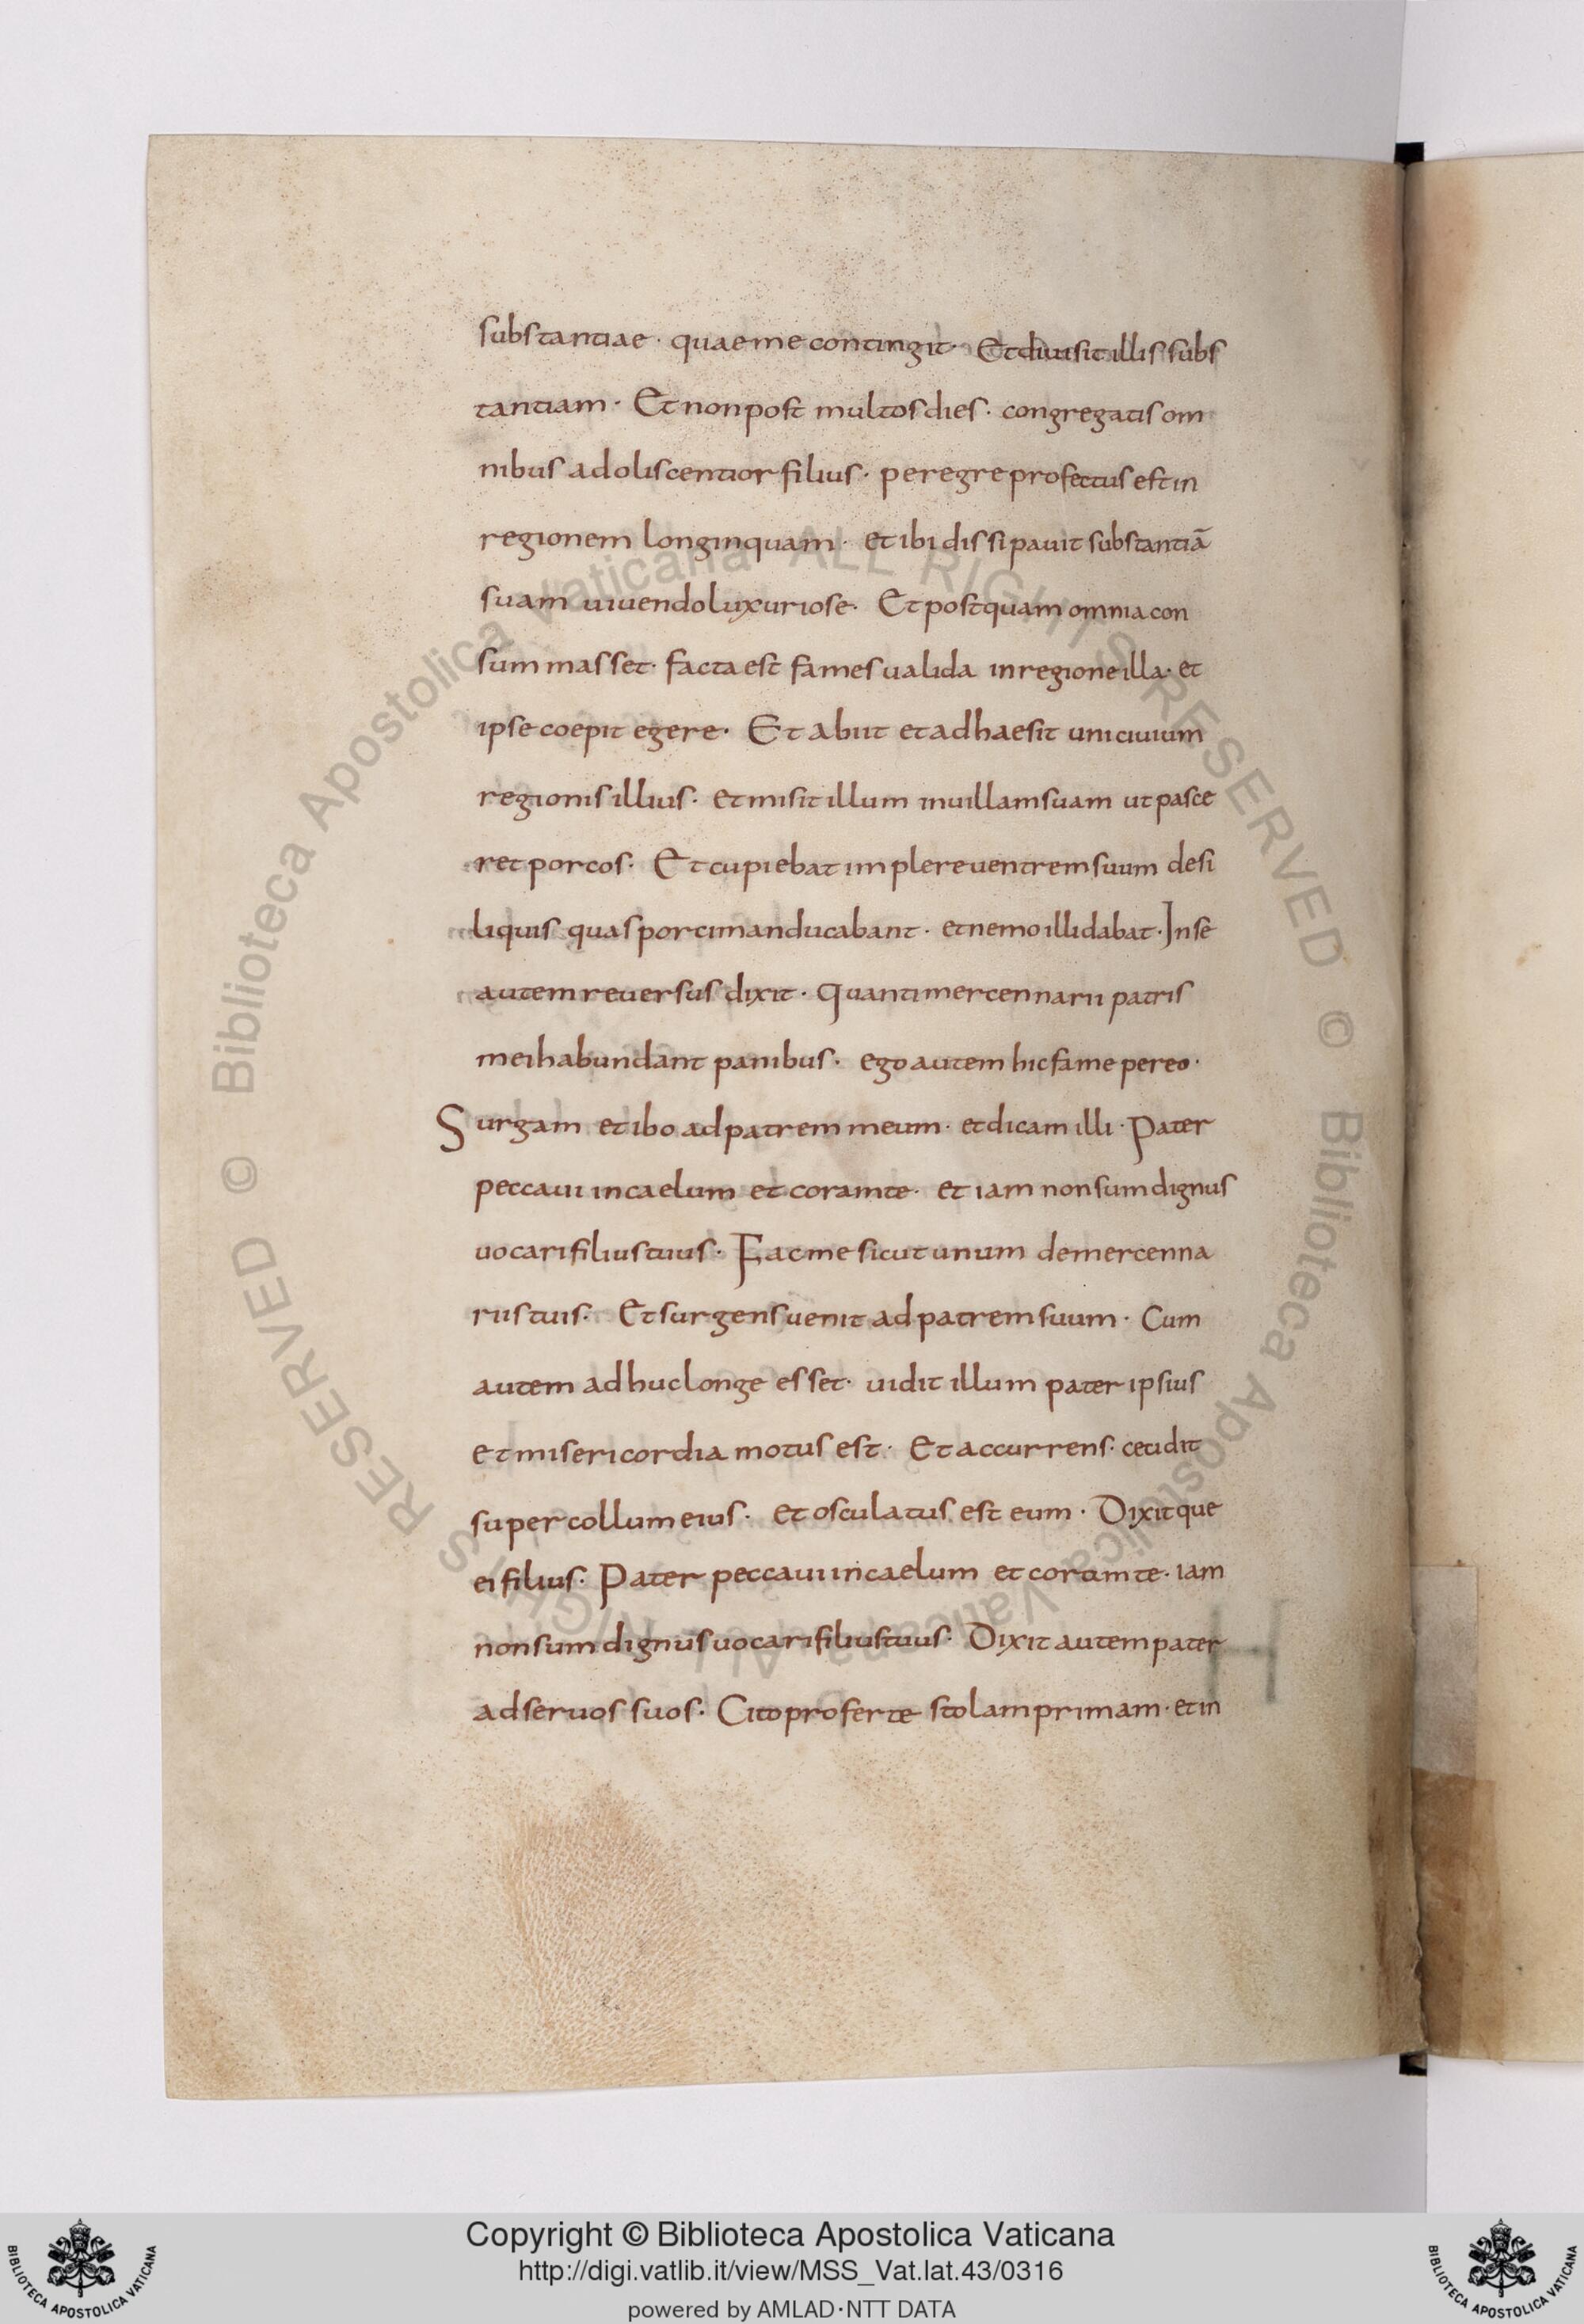 substantiae · quae me contingit · Et diuisit illis subs
tantiam · Et non post multos dies · congregatis om
nibus adoliscentior filius · peregre profectus est in
regionem longinquam · et ibi dissipauit substantiā
suam uiuendo luxuriose · Et postquam omnia con
summasset · facta est fames ualida in regione illa · et
ipse coepit egere · Et abiit et adhaesit uni ciuium
regionis illius · et misit illum in uillam suam ut pasce
ret porcos · Et cupiebat implere uentrem suum de si
liquis quas porci manducabant · et nemo illi dabat · In se
autem reuersus dixit · Quanti mercennarii patris
mei habundant panibus · ego autem hic fame pereo ·
Surgam et ibo ad patrem meum · et dicam illi · Pater
peccaui in caelum et coram te · et iam non sum dignus
uocari filius tuus · Fac me sicut unum de mercenna
riis tuis · Et surgens uenit ad patrem suum · Cum
autem adhuc longe esset · uidit illum pater ipsius
et misericordia motus est · Et accurrens · cecidit
super collum eius · et osculatus est eum · Dixitque
ei filius · Pater peccaui in caelum et coram te · iam
non sum dignus uocari filius tuus · Dixit autem pater
ad seruos suos · Cito proferte stolam primam · et in
© Biblioteca Apostolica Vaticana · ALL RIGHTS RESERVED © Biblioteca Apostolica Vaticana · ALL RIGHTS RESERVED
Copyright © Biblioteca Apostolica Vaticana
http://digi.vatlib.it/view/MSS_Vat.lat.43/0316
powered by AMLAD·NTT DATA
BIBLIOTECA APOSTOLICA VATICANA
BIBLIOTECA APOSTOLICA VATICANA